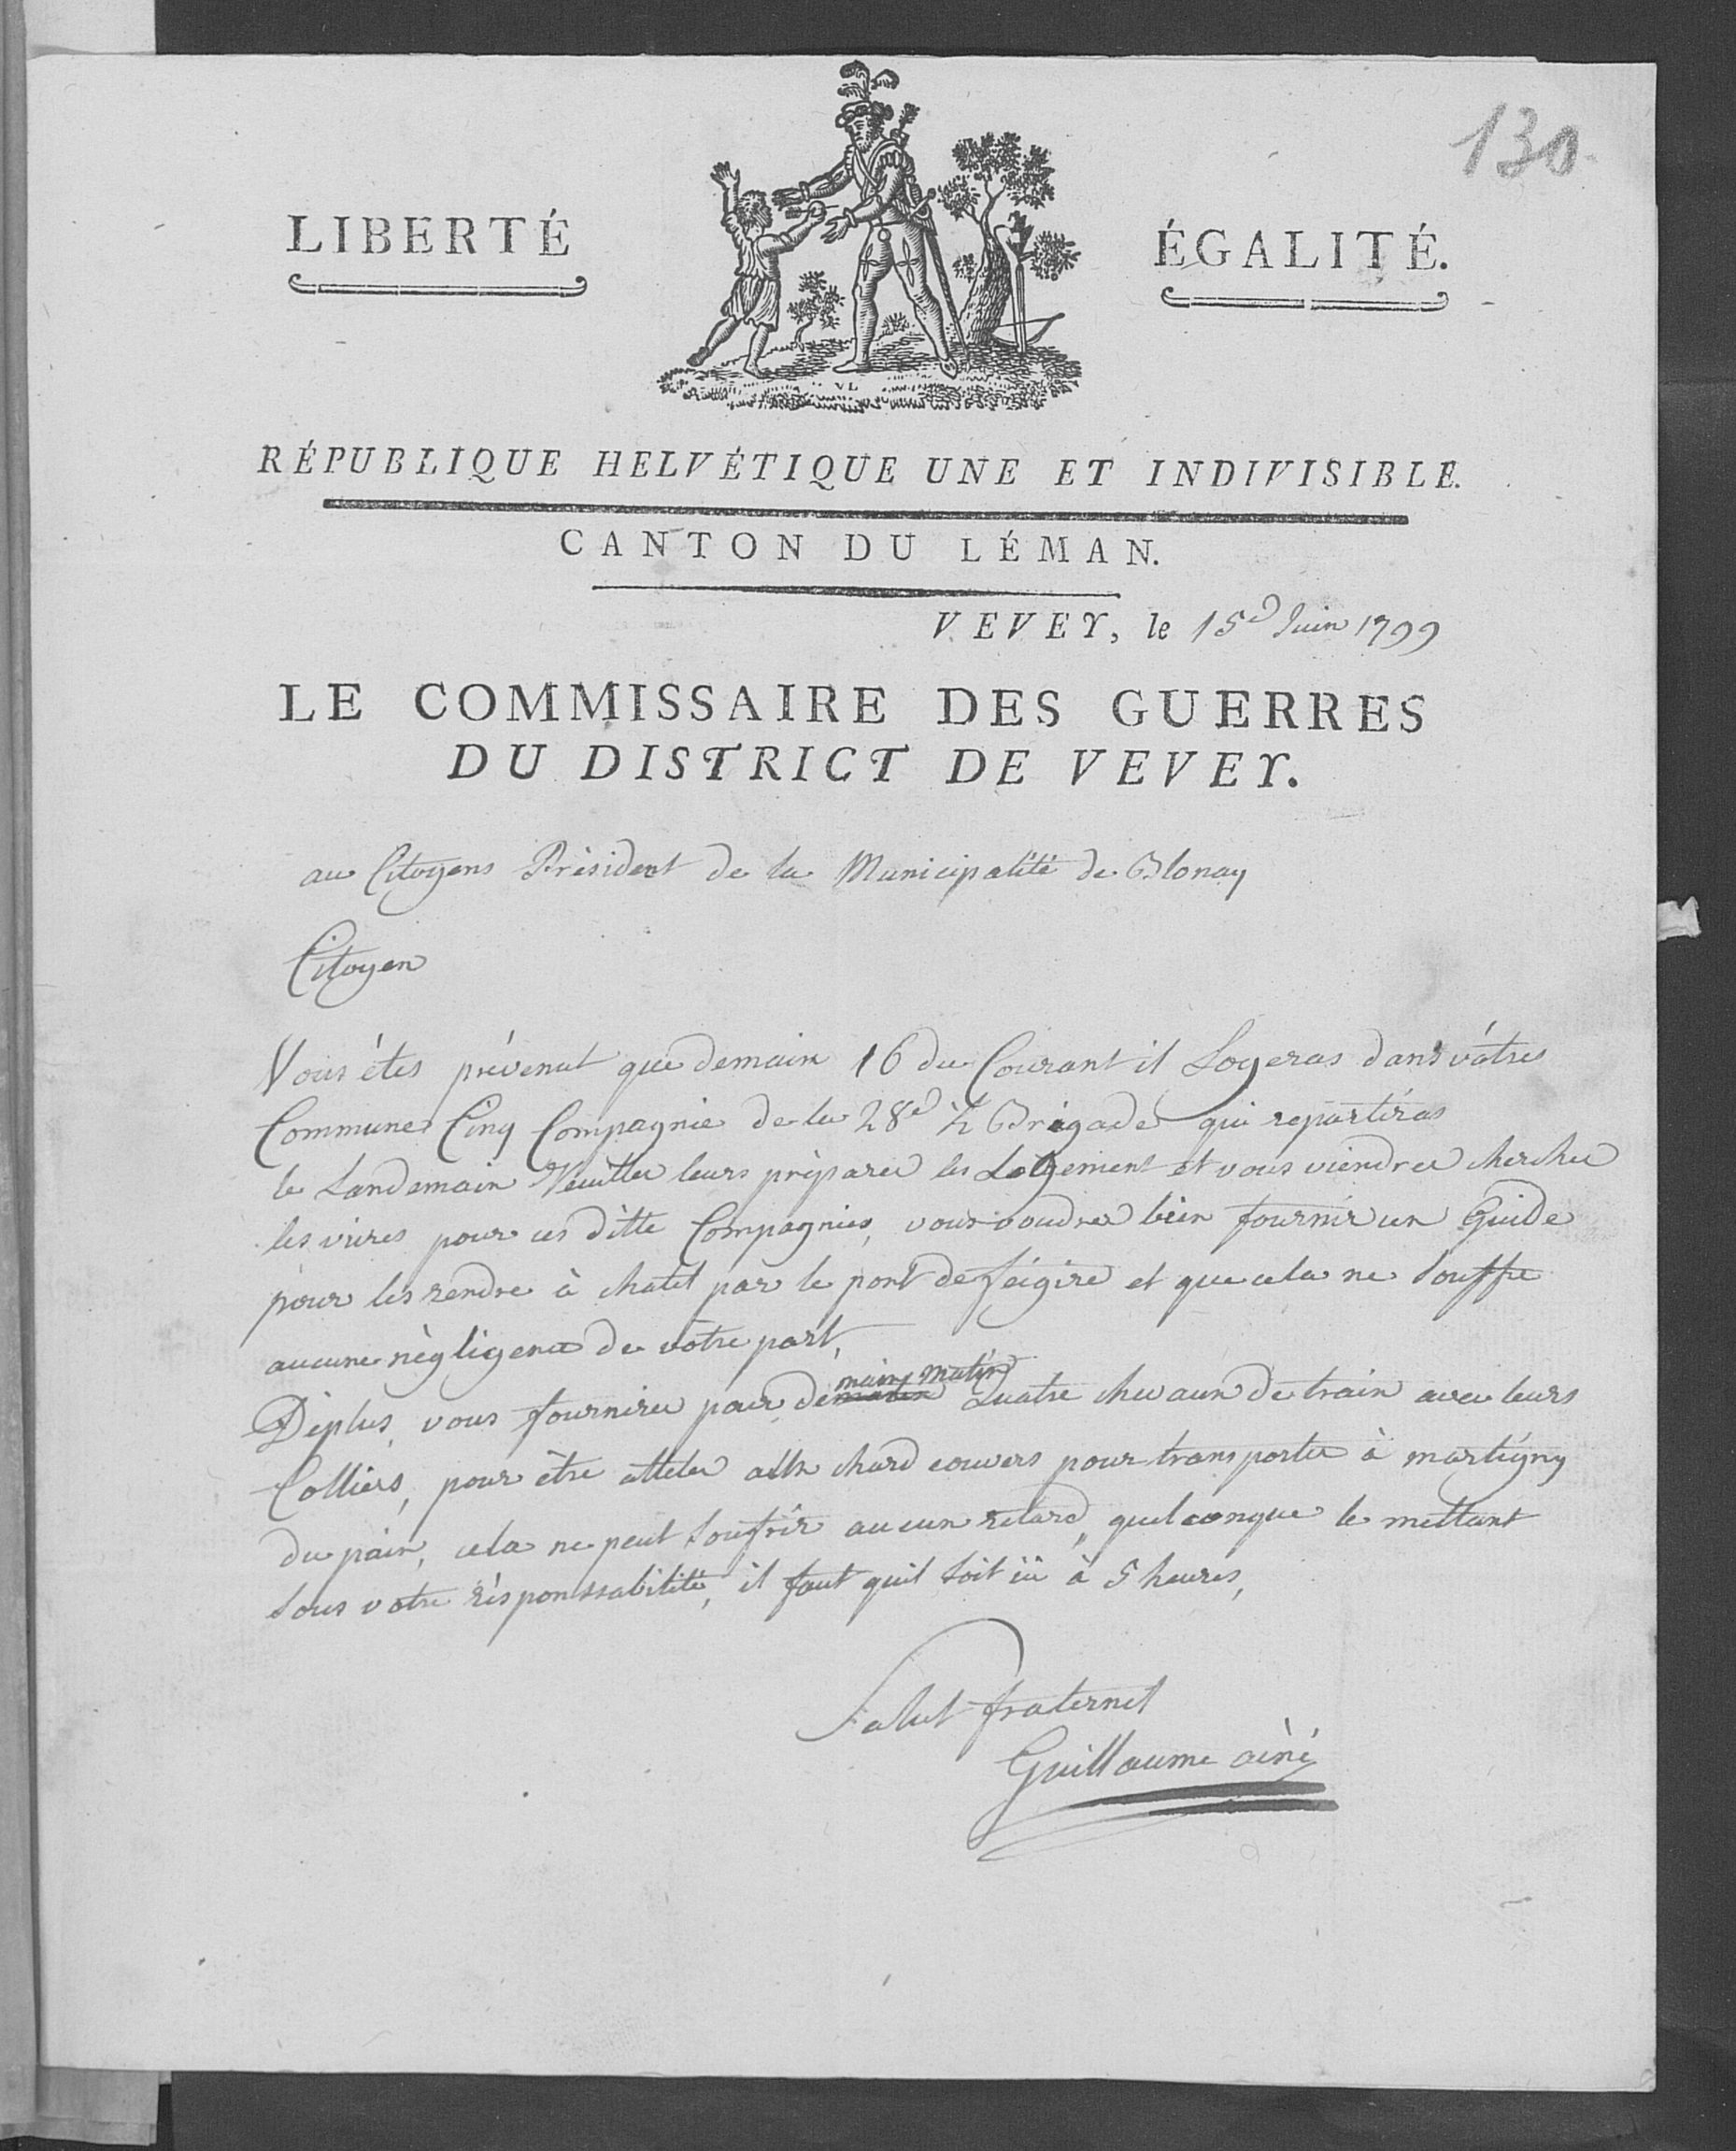 130
LIBERTÉ
ÉGALITÉ.
VL
RÉPUBLIQUE HELVÉTIQUE UNE ET INDIVISIBLE.
CANTON DU LÉMAN.
VEVEY, le 15e Juin 1799
LE COMMISSAIRE DES GUERRES
DU DISTRICT DE VEVEY.
au Citoyens Président de la Municipalité de Blonay
Citoyen
Vous étes prévenut que demain 16 du Courant il Logeras dans vôtres
Commune Cinq Compagnie de la 28e ½ Brigade qui repartiras
le Landemain Veuiller leurs préparer les Logement et vous viendrer chercher
les vivres pour ces ditte Compagnies, vous voudrer bien fournir un Guide
pour les rendre à chatel par le pont de feigire et que cela ne souffre
aucune nègligence de vôtre part,
Déplus, vous fournirer pour demain matin Quatre chevaux de train avec leurs
Colliers, pour être atteler aux chard couvers pour transporter à martigny
du pain, cela ne peut soufrir aucun retard, quelconque le mettant
sous votre résponssabilité, il faut quil soit ici à 5 heures,
Salut fraternel
Guillaume ainé